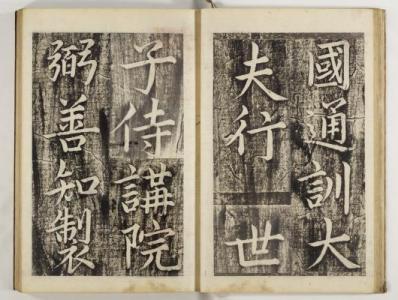 國通訓大
夫行世
子侍講院
弼善知製